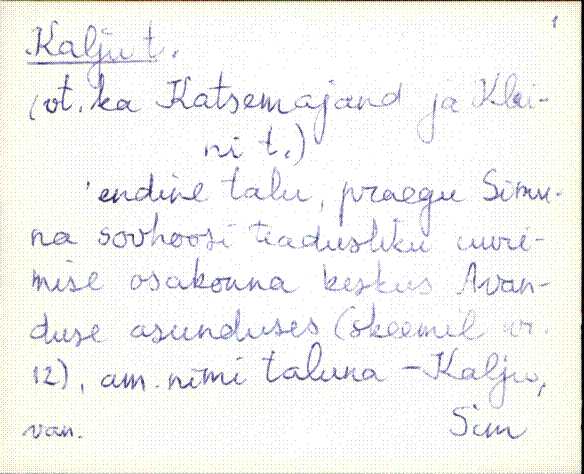 1
Kalju t.
(vt. ka Katsemajand ja Klei-
ni t.)
'endine talu, praegu Simu-
na sovhoosi teadusliku uuri-
mise osakonna keskus Avan-
duse asunduses (skeemil nr.
12), am. nimi taluna - Kalju,
van. Sim